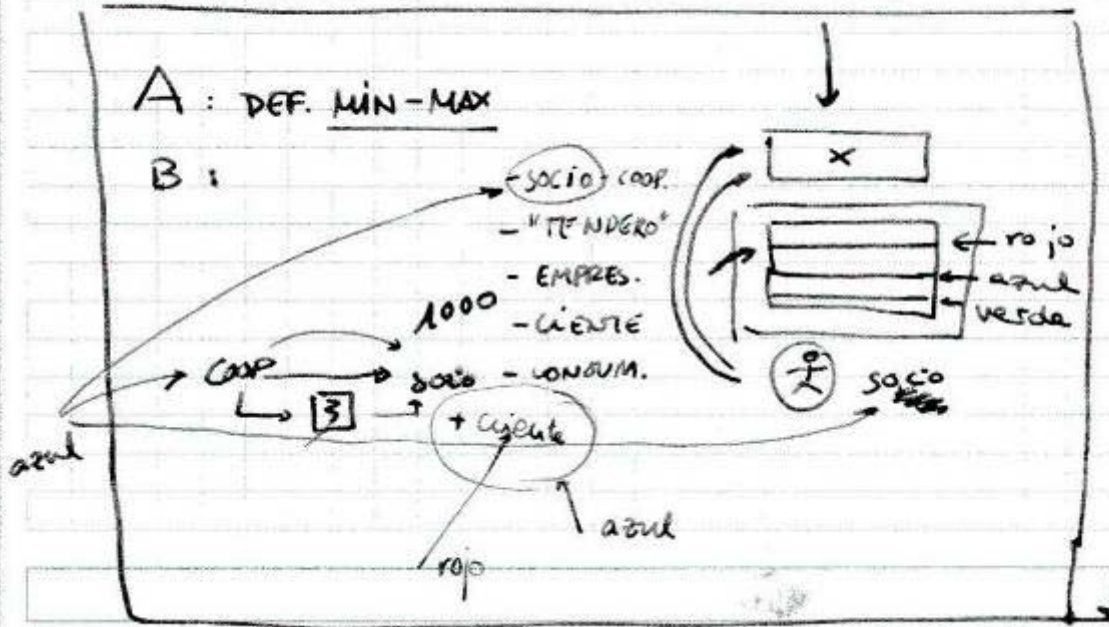 A : DEF. MIN-MAX
B :
- SOCIO - COOP.
- "TENDERO"
- EMPRES.
- CLIENTE
- CONSUM.
1000
COOP
3
socio
+ cliente
azul
rojo
azul
x
rojo
azul
verde
socio